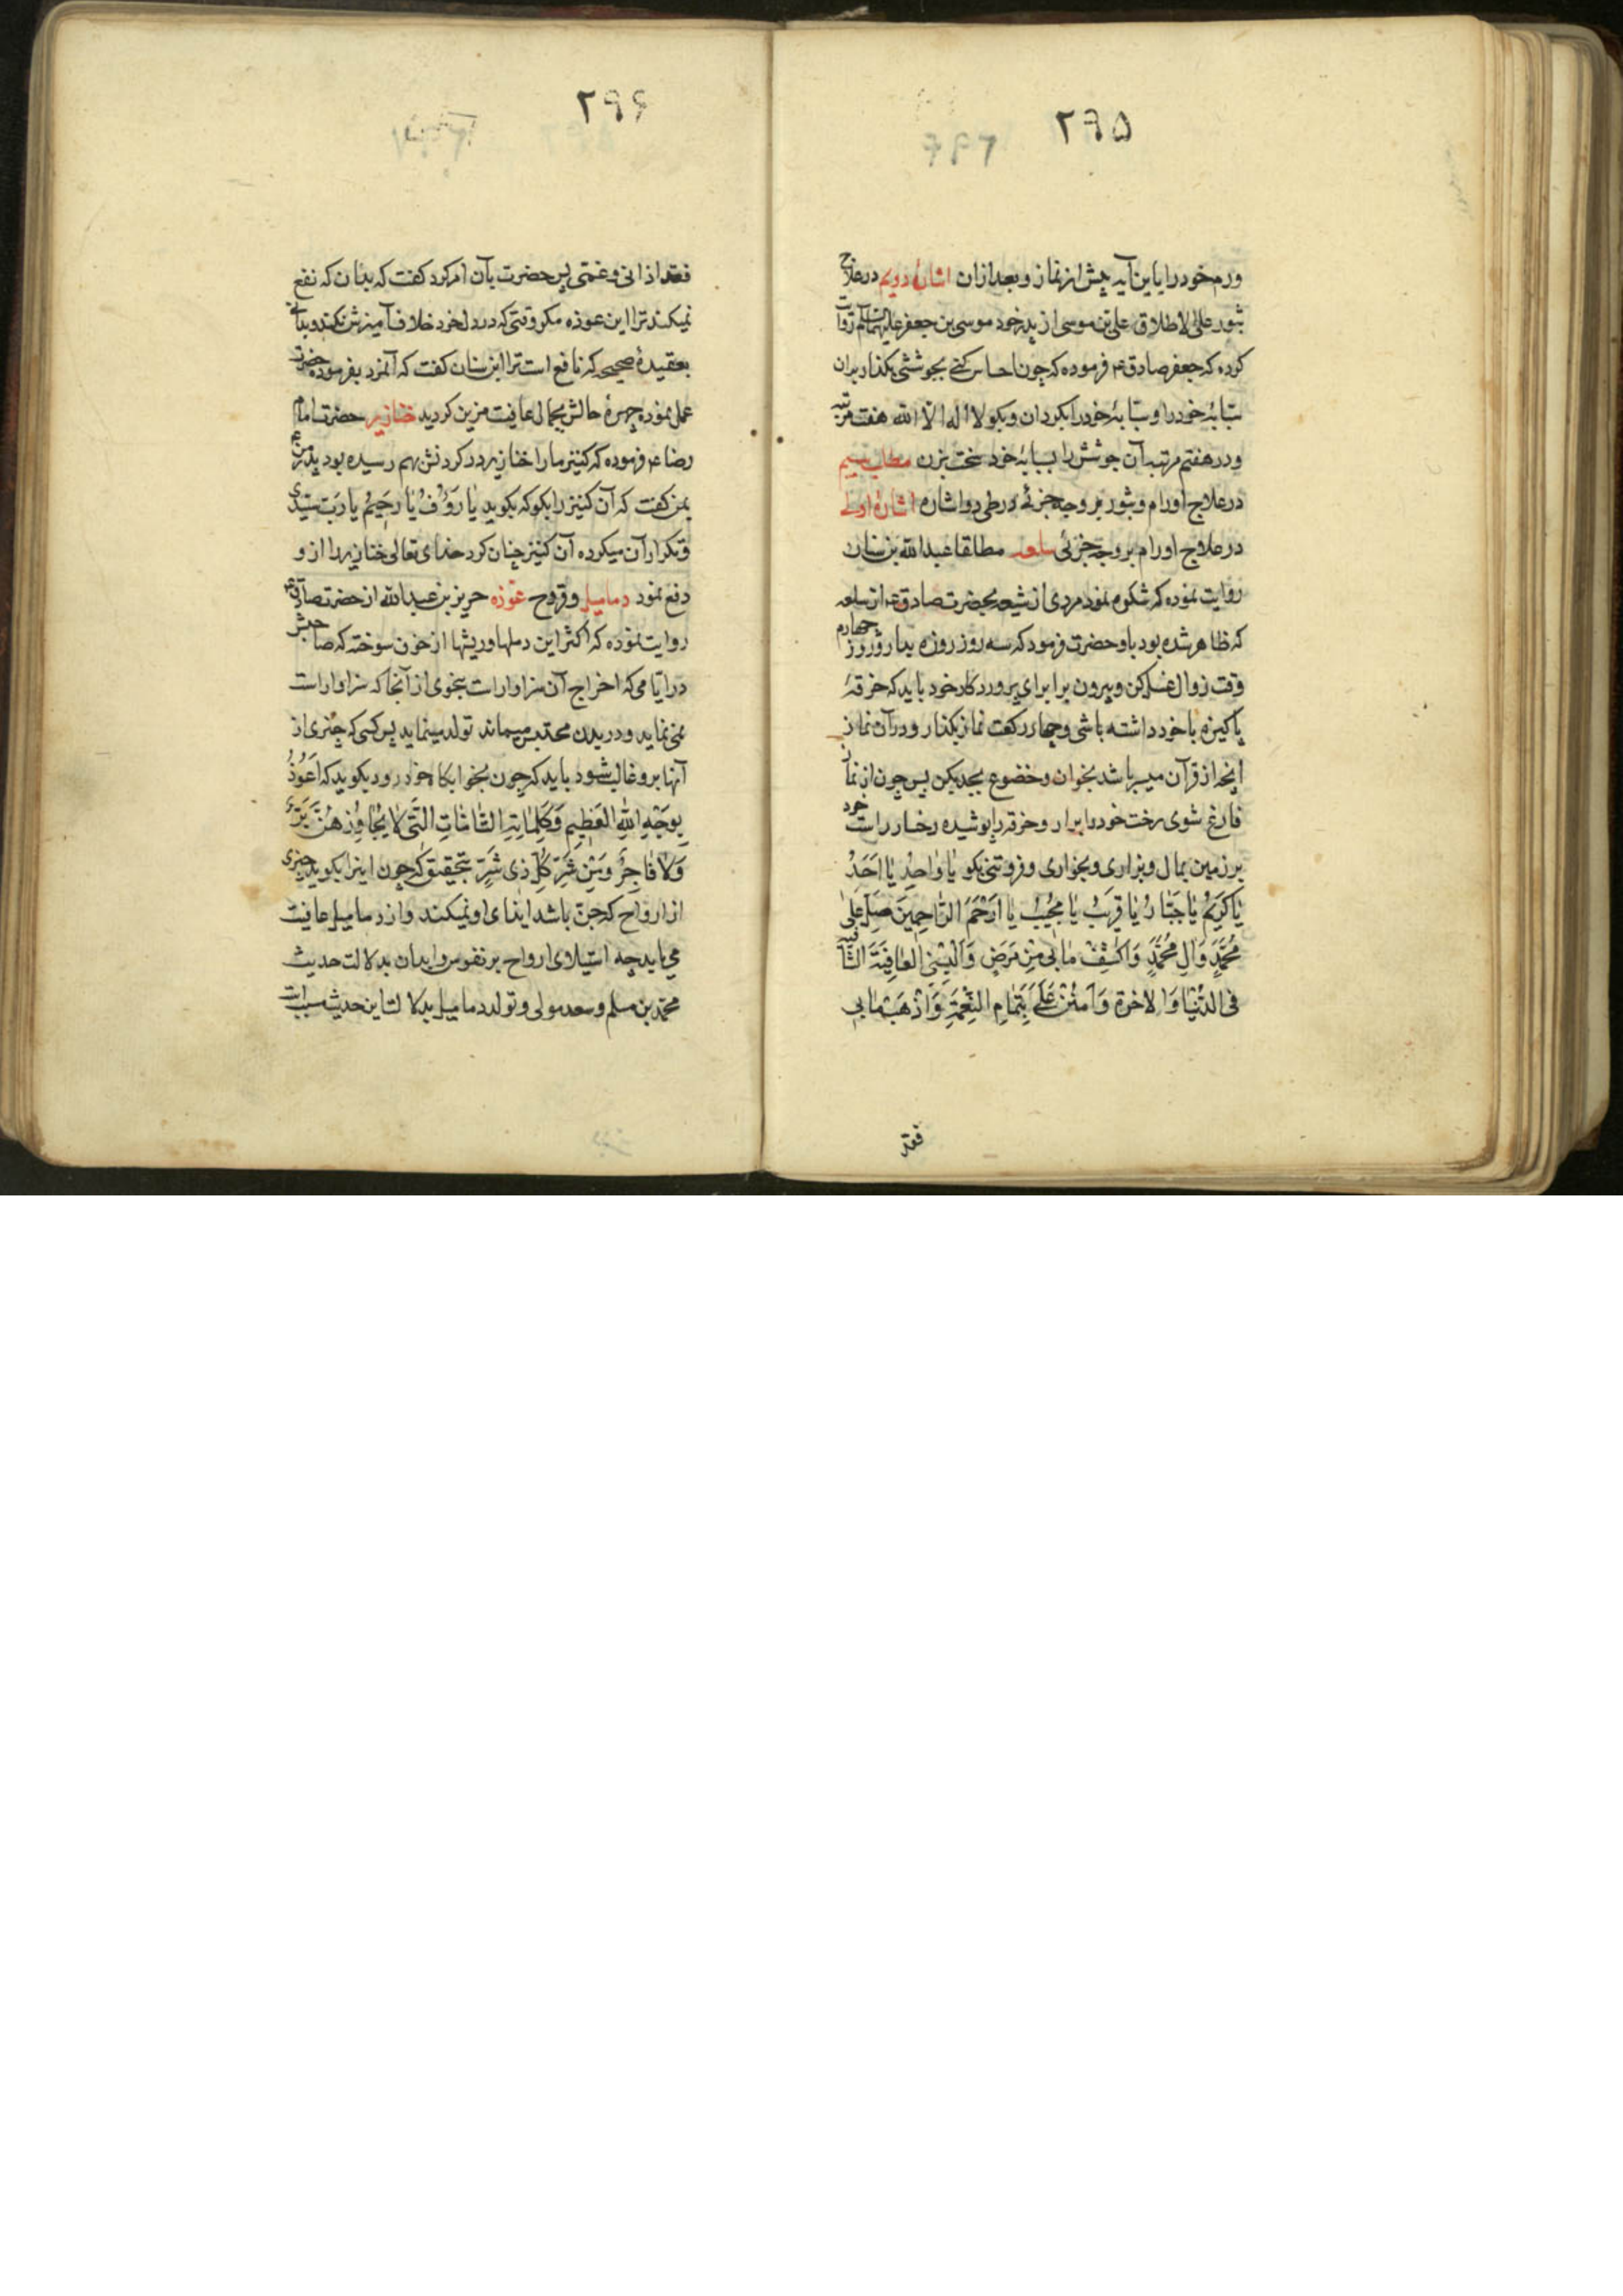 ۲۹۵
ورم خود را باین آیه پیش از نماز و بعد ازان اشارۀ دویم در علاج
بثور علی الاطلاق علی بن موسی از پدر خود موسی بن جعفر علیهما السلام روایت
کرده که جعفر صادق ع فرموده که چون احساس کنی بجوششی بگذار بران
سبابۀ خود را و سبابۀ خود را بگردان و بگو لا اله الا الله هفت مرتبه
و در هفتم مرتبه آن جوشش را بسبابۀ خود سخت بزن مطلب سیم
در علاج اورام و بثور بر وجه جزئی در طی دو اشاره اشارۀ اولی
در علاج اورام بر وجه جزئی سلعه مطلقا عبدالله بن سنان
روایت نموده که شکوه نمود مردی از شیعه بحضرت صادق ع از سلعه
که ظاهر شده بود باو حضرت فرمود که سه روز روزه بدار و روز چهارم
وقت زوال غسل کن و بیرون برا برای پروردکار خود باید که خرقۀ
پاکیزه با خود داشته باشی و چهار رکعت نماز بگذار و در آن نماز
آنچه از قرآن میسر باشد بخوان و خضوع بجد بکن پس چون از نماز
فارغ شوی رخت خود را برار و خرقه را پوشیده رخسار راست خود
بر زمین بمال و بزاری و بخواری و فروتنی بگو یا واحِدُ یا اَحَدُ
یا کَریمُ یا جَبّارُ یا قَریبُ یا مُجیبُ یا اَرْحَمَ الرّاحِمینَ صَلِّ عَلی
مُحَمَّدٍ وَآلِ مُحَمَّدٍ وَاکْشِفْ ما بی مِنْ مَرَضٍ وَاَلْبِسْنِی العافِیَةَ الشّافیة
فی الدُّنْیا وَالاخرة وَامْنُنْ عَلَیَّ بِتَمامِ النِّعْمَةِ وَاَذْهَبْ ما بی
فقد
۲۹۶
فقد اذانی و غمنی پس حضرت بآن امر کرد گفت که بدان که نفع
نمیکند ترا این عوذه مگر وقتی که در دل خود خلاف آمیزش نکند و بدانی
بعقیدۀ صحیحی که نافع است ترا ابن سنان گفت که آنمرد بفرموده حضرت
عمل نموده چهرۀ حالش بجمال عافیت مزین گردید خنازیر حضرت امام
رضا ع فرموده که کنیز ما را خنازیر در گردنش بهم رسیده بود پدر من ع
بمن گفت که آن کنیز را بگو که بگوید یا رَؤُفُ یا رَحیمُ یا رَبِّ سیّدی
و تکرار آن میکرده آن کنیز چنان کرد خدای تعالی خنازیر را از و
دفع نمود دمامیل و قروح عوذه حریز بن عبدالله از حضرت صادق ع
روایت نموده که اکثر این دملها و ریشها از خون سوخته که صاحبش
در ایامی که اخراج آن سزاوار است بنحوی از آنجا که سزاوار است
نمی نماید و در بدن محتبس میماند تولد مینماید پس کسی که چیزی از
آنها برو غالب شود باید که چون بخوابگاه خود رود بگوید که اَعُوذُ
بِوَجْهِ اللهِ العَظیمِ وَکَلِماتِهِ التّامّاتِ الَّتی لا یُجاوِزُهُنَّ بَرٌّ
وَلا فاجِرٌ وَمِنْ شَرِّ کُلِّ ذی شَرٍّ بتحقیق که چون اینرا بگوید چیزی
از ارواح که جن باشد ایذای او نمیکند و از دمامیل عافیت
می یابد چه استیلای ارواح بر نفوس و ابدان بدلالت حدیث
محمد بن مسلم و سعد مولی و تولد دمامیل بدلالت این حدیث سبب است